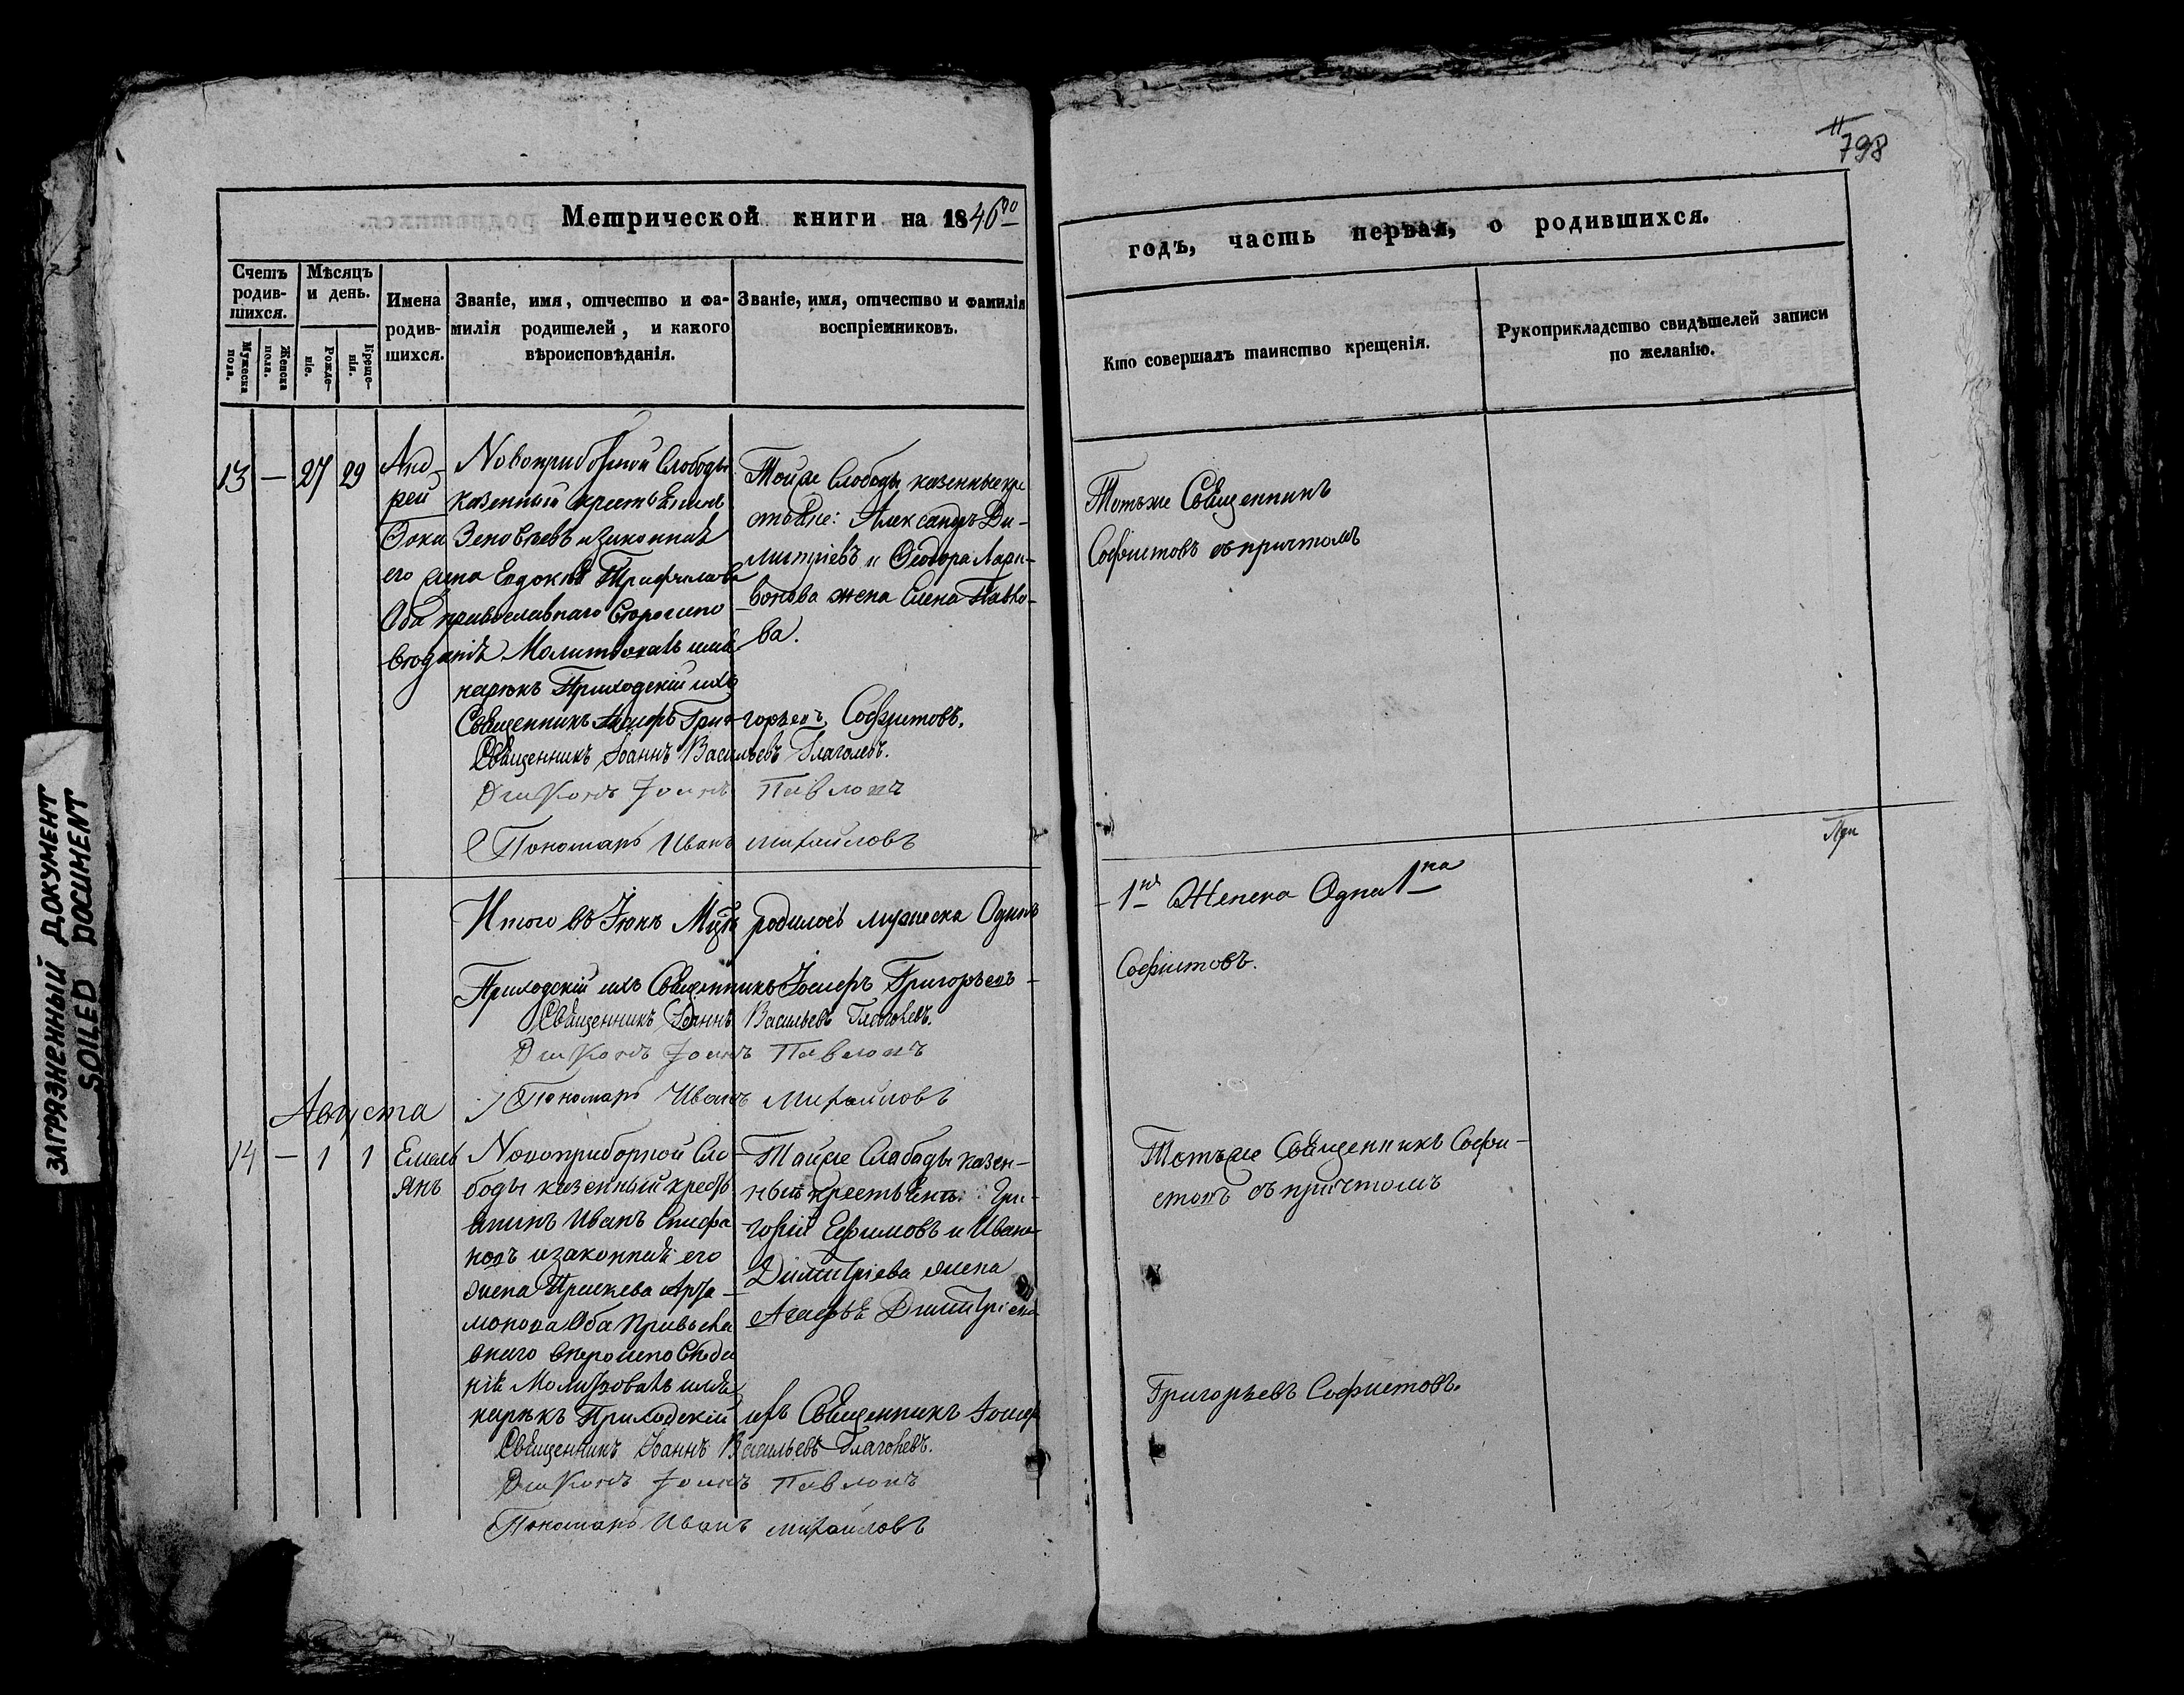 11
798
Метрической книги на 1846го
годъ, часть первая, о родившихся.
Счетъ родив-шихся.
Мужеска пола.
Женска пола.
Мѣсяцъ и день.
Рожде-ніе.
Креще-нія.
Имена родив-шихся.
Званіе, имя, отчество и фа-милія родителей, и какого вѣроисповѣданія.
Званіе, имя, отчество и фамилія воспріемниковъ.
Кто совершалъ таинство крещенія.
Рукоприкладство свидѣтелей записи по желанію.
13 — 27 29
Анд-
рей
Новоприборной Слободы
казенный крестьянинъ
Зеновьевъ и законная
его жена Евдокія Трифилова
Оба православнаго вѣроиспо
вѣданія Молитвовалъ имя
нарѣкъ Приходскій ихъ
Священникъ Іосифъ Григорьевъ Софистовъ.
Священникъ Іоаннъ Васильевъ Глаголевъ.
Діаконъ Іоаннъ Павловъ
Пономарь Иванъ Михайловъ
Тойже Слободы казенные кре
стьяне: Александръ Ди-
митріевъ и Ѳеодора Лари-
вонова жена Елена Павло-
ва.
Тотъже Священникъ
Софистовъ съ причтомъ
Итого въ Іюлѣ Мцѣ родилось мужеска Одинъ
1нъ Женска Одна 1на
Приходскій ихъ Священникъ Іосифъ Григорьевъ
Софистовъ.
Священникъ Іоаннъ Васильевъ Глаголевъ.
Діаконъ Іоаннъ Павловъ
Пономарь Иванъ Михайловъ
Августа
14 — 1 1
Емель
янъ
Новоприборной Сло
боды казенный кресть
янинъ Иванъ Епифа
новъ и законная его
жена Праскева Арта-
монова Оба Правосла
внаго вѣроисповѣда
нія Молитвовалъ имя
нарѣкъ Приходскій ихъ Священникъ Іосифъ
Григорьевъ Софистовъ.
Священникъ Іоаннъ Васильевъ Глаголевъ.
Діаконъ Іоаннъ Павловъ
Пономарь Иванъ Михайловъ
Тойже Слабоды казен-
ный крестьянинъ: Гри-
горій Ефимовъ и Ивана
Димитріева жена
Агафья Димитріева
Тотъже Священникъ Софи-
стовъ съ причтомъ
ЗАГРЯЗНЕННЫЙ ДОКУМЕНТ
SOILED DOCUMENT